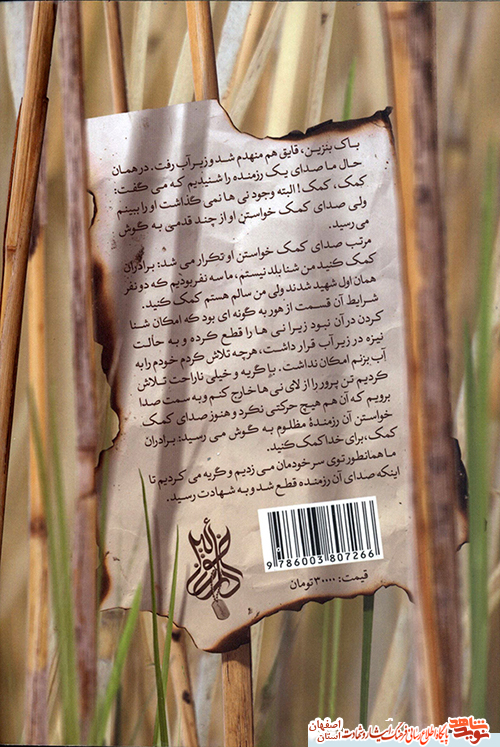 باک بنزین، قایق هم منهدم شد و زیر آب رفت. در همان
حال ما صدای یک رزمنده را شنیدیم که می گفت:
کمک، کمک! البته وجود نی ها نمی گذاشت او را ببینم
ولی صدای کمک خواستن او از چند قدمی به گوش
می رسید.
مرتب صدای کمک خواستن او تکرار می شد: برادران
کمک کنید من شنا بلد نیستم، ما سه نفر بودیم که دو نفر
همان اول شهید شدند ولی من سالم هستم کمک کنید.
شرایط آن قسمت از هور به گونه ای بود که امکان شنا
کردن در آن نبود زیرا نی ها را قطع کرده و به حالت
نیزه در زیر آب قرار داشت، هرچه تلاش کردم خودم را به
آب بزنم امکان نداشت. با گریه و خیلی ناراحت تلاش
کردیم تن پرور را از لای نی ها خارج کنم و به سمت صدا
برویم که آن هم هیچ حرکتی نکرد و هنوز صدای کمک
خواستن آن رزمندۀ مظلوم به گوش می رسید: برادران
کمک، برای خدا کمک کنید.
ما همانطور توی سر خودمان می زدیم و گریه می کردیم تا
اینکه صدای آن رزمنده قطع شد و به شهادت رسید.
9 786003 807266
قیمت: ۳۰۰۰۰ تومان
نوید شاهد
پایگاه اطلاع رسانی فرهنگ ایثار و شهادت
استان اصفهان